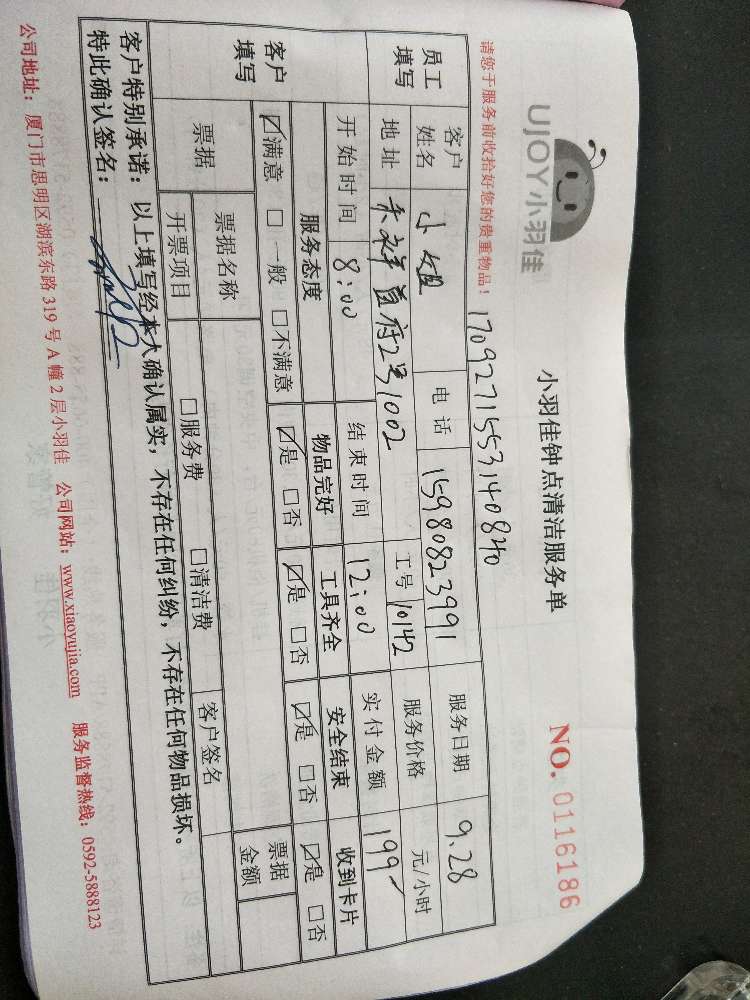 UJOY小羽佳
小羽佳钟点清洁服务单
NO. 0116186
请您于服务前收拾好您的贵重物品！
1709271553140840
员工填写 客户姓名 小姐 电话 15980823991 服务日期 9.28
地址 禾祥 府2号1002 工号 10142 服务价格 元/小时
开始时间 8:00 结束时间 12:00 实付金额 199
客户填写 服务态度 物品完好 工具齐全 安全结束 收到卡片
☑满意 □一般 □不满意 ☑是 □否 ☑是 □否 ☑是 □否 ☑是 □否
票据 票据名称 票据金额
开票项目 □服务费 □清洁费 客户签名
客户特别承诺：以上填写经本人确认属实，不存在任何纠纷，不存在任何物品损坏。
特此确认签名：
公司地址：厦门市思明区湖滨东路319号A幢2层小羽佳 公司网站：www.xiaoyujia.com 服务监督热线：0592-5888123